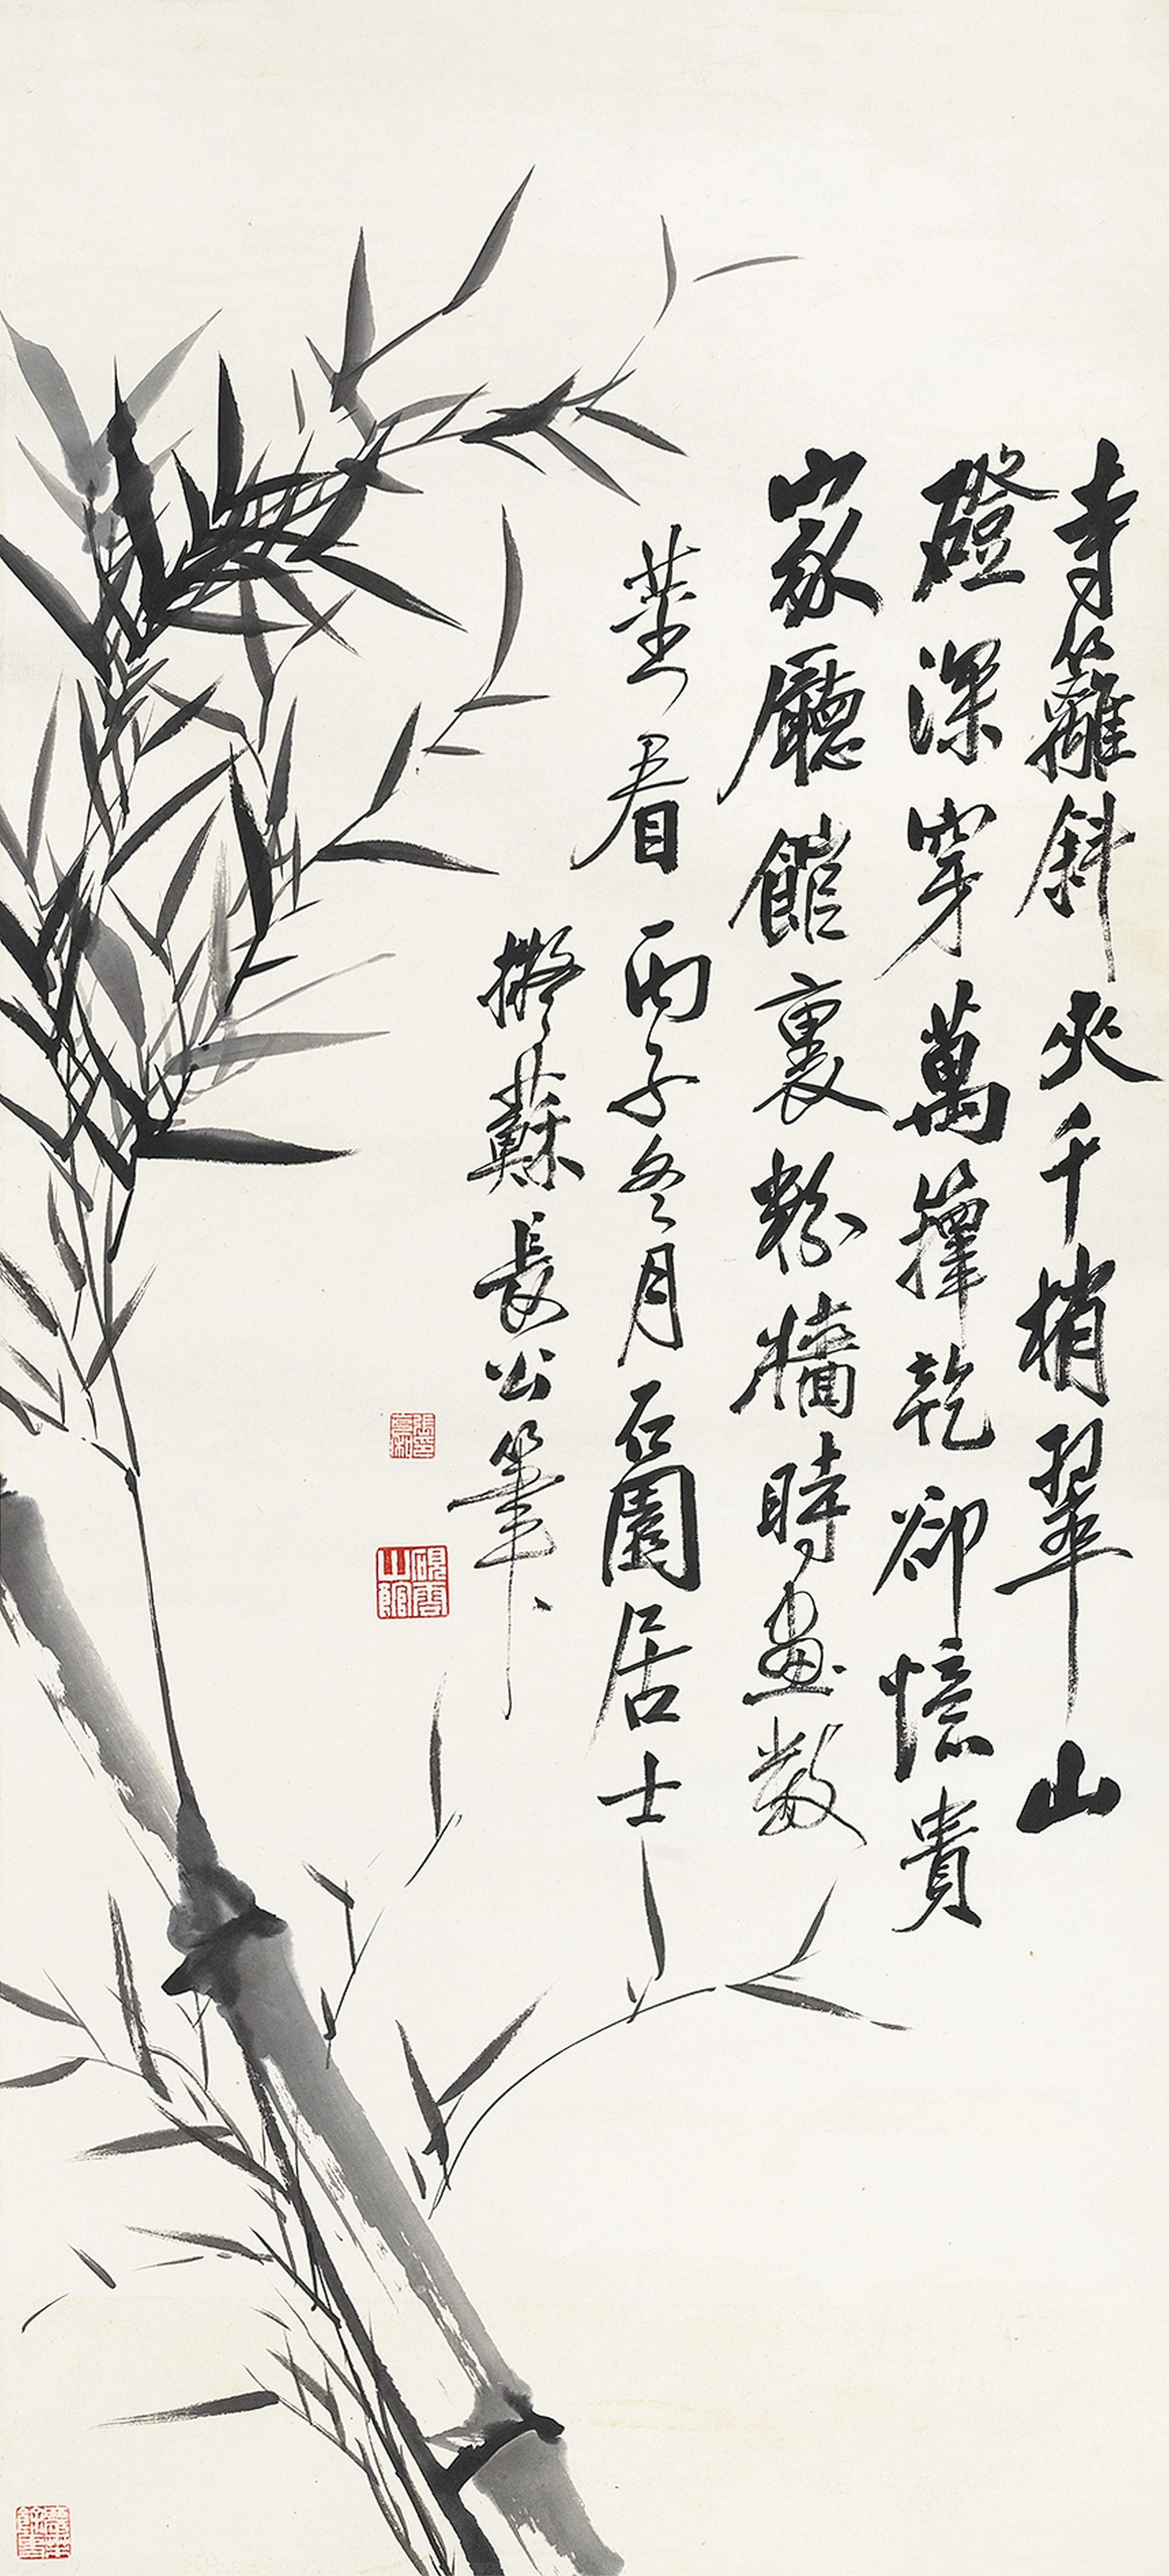 寺籬斜夾千梢翠山
磴深穿萬籜乾卻憶貴
家廳館裏粉牆時畫數
莖看 丙子冬月石園居士
擬蘇長公筆
硯雲山館